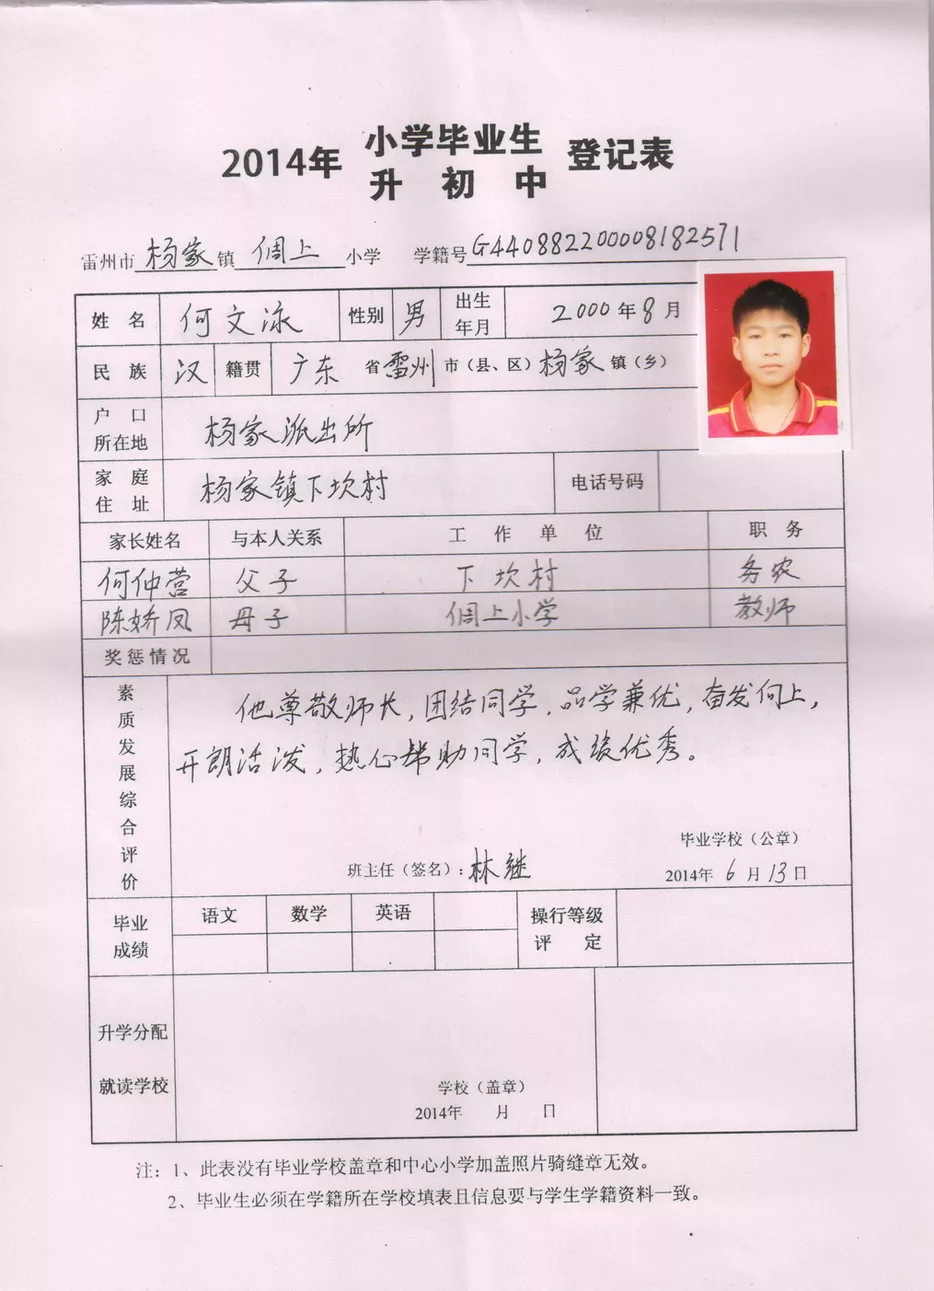 2014年 小学毕业生 登记表
升 初 中
雷州市 杨家 镇 倜上 小学 学籍号 G440882200008182571
姓 名 何文泳 性别 男 出生年月 2000年8月
民 族 汉 籍贯 广东 省 雷州 市(县、区) 杨家 镇(乡)
户 口 所在地 杨家派出所
家 庭 住 址 杨家镇下坎村 电话号码
家长姓名 与本人关系 工 作 单 位 职 务
何仲营 父子 下坎村 务农
陈娇凤 母子 倜上小学 教师
奖惩情况
素质发展综合评价
他尊敬师长,团结同学,品学兼优,奋发向上,
开朗活泼,热心帮助同学,成绩优秀。
毕业学校(公章)
班主任(签名):林继 2014年 6 月 13 日
毕业成绩 语文 数学 英语 操行等级评 定
升学分配
就读学校
学校(盖章)
2014年 月 日
注:1、此表没有毕业学校盖章和中心小学加盖照片骑缝章无效。
2、毕业生必须在学籍所在学校填表且信息要与学生学籍资料一致。